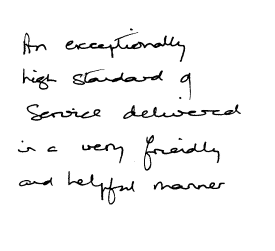 An exceptionally
high standard of
Service delivered
in a very friendly
and helpful manner